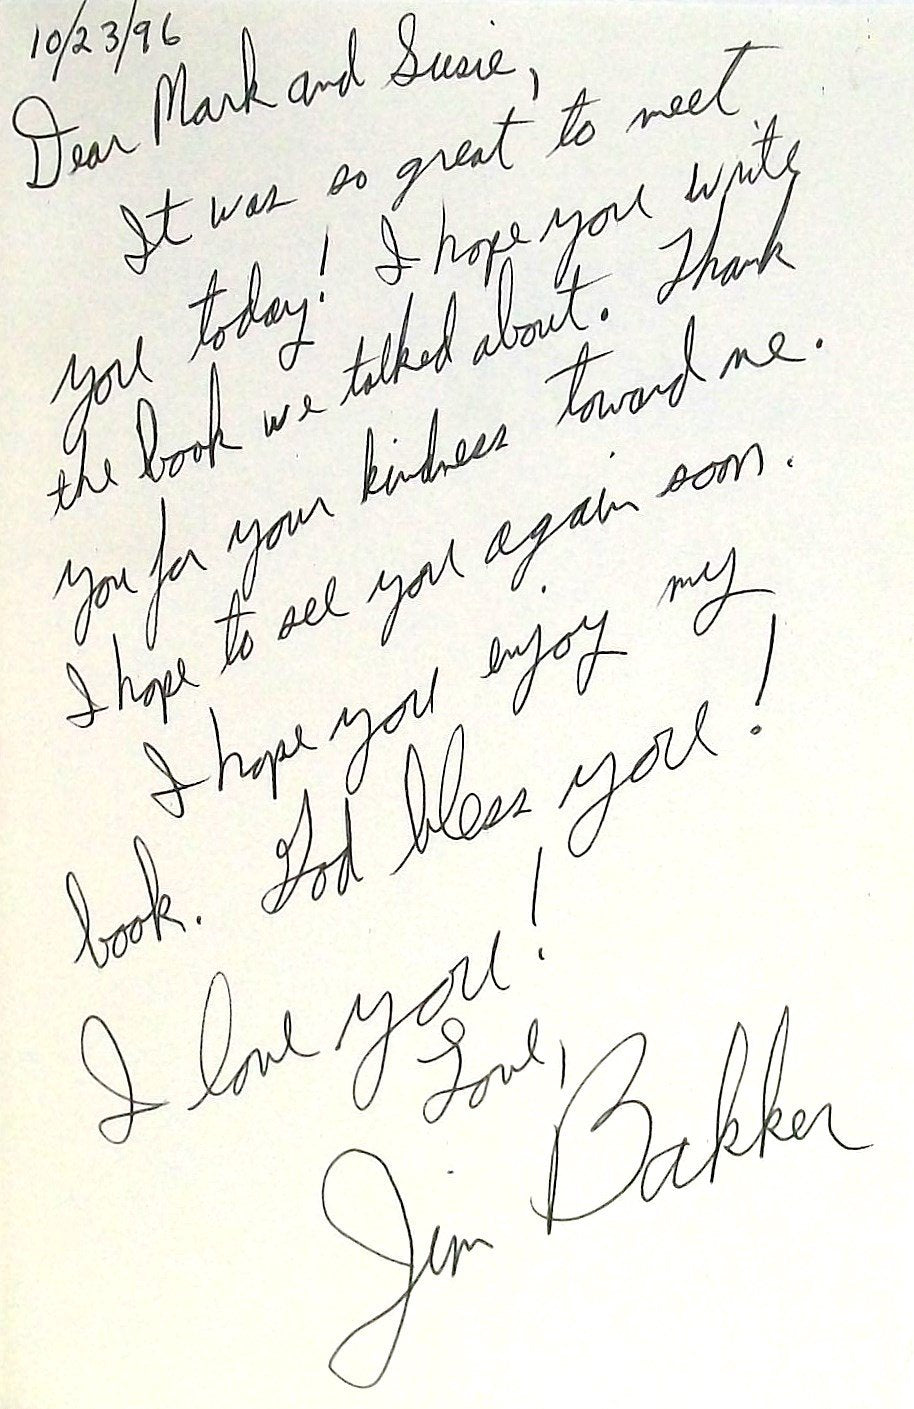 10/23/96
Dear Mark and Susie,
It was so great to meet
you today! I hope you write
the book we talked about. Thank
you for your kindness toward me.
I hope to see you again soon.
I hope you enjoy my
book. God bless you!
I love you!
Love,
Jim Bakker